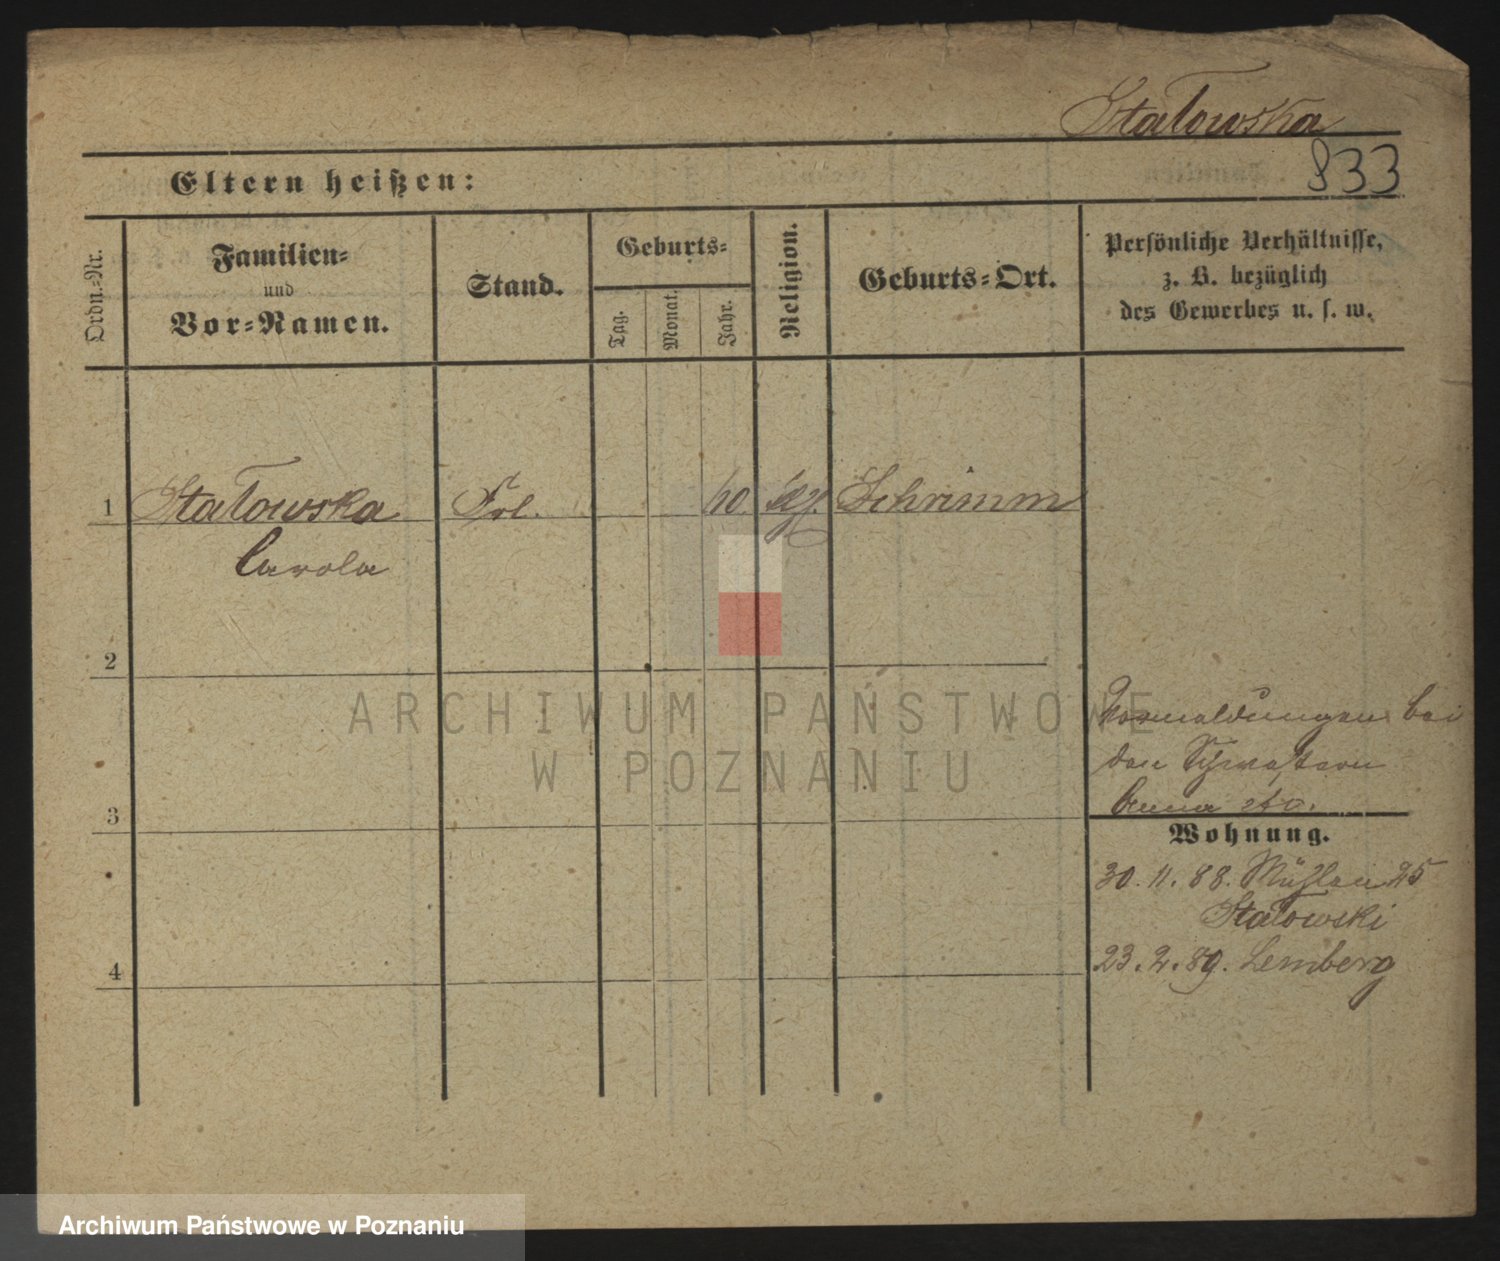 Stałowska
833
Eltern heißen:
Ordn.-Nr.
Familien-
und
Vor-Namen.
Stand.
Geburts-
Tag.
Monat.
Jahr.
Religion.
Geburts-Ort.
Persönliche Verhältnisse,
z. B. bezüglich
des Gewerbes u. s. w.
1 Stałowska Frl. Schrimm
Carola
2
3
4
bei
den Schwestern
Anna
Wohnung.
30. 11. 88. Mühlen 25
Stałowski
23. 2. 89. Lemberg
ARCHIWUM PAŃSTWOWE
W POZNANIU
Archiwum Państwowe w Poznaniu